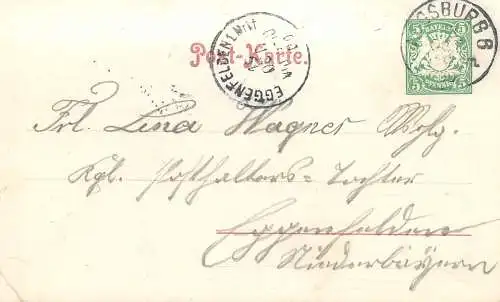 Post-Karte.
EGGENFELDEN
SBURG 6
BAYERN
5 PFENNIG 5
Frl. Lina Wagner Wolg.
Kgl. Posthalters-Tochter
Eggenfelden
Niederbayern